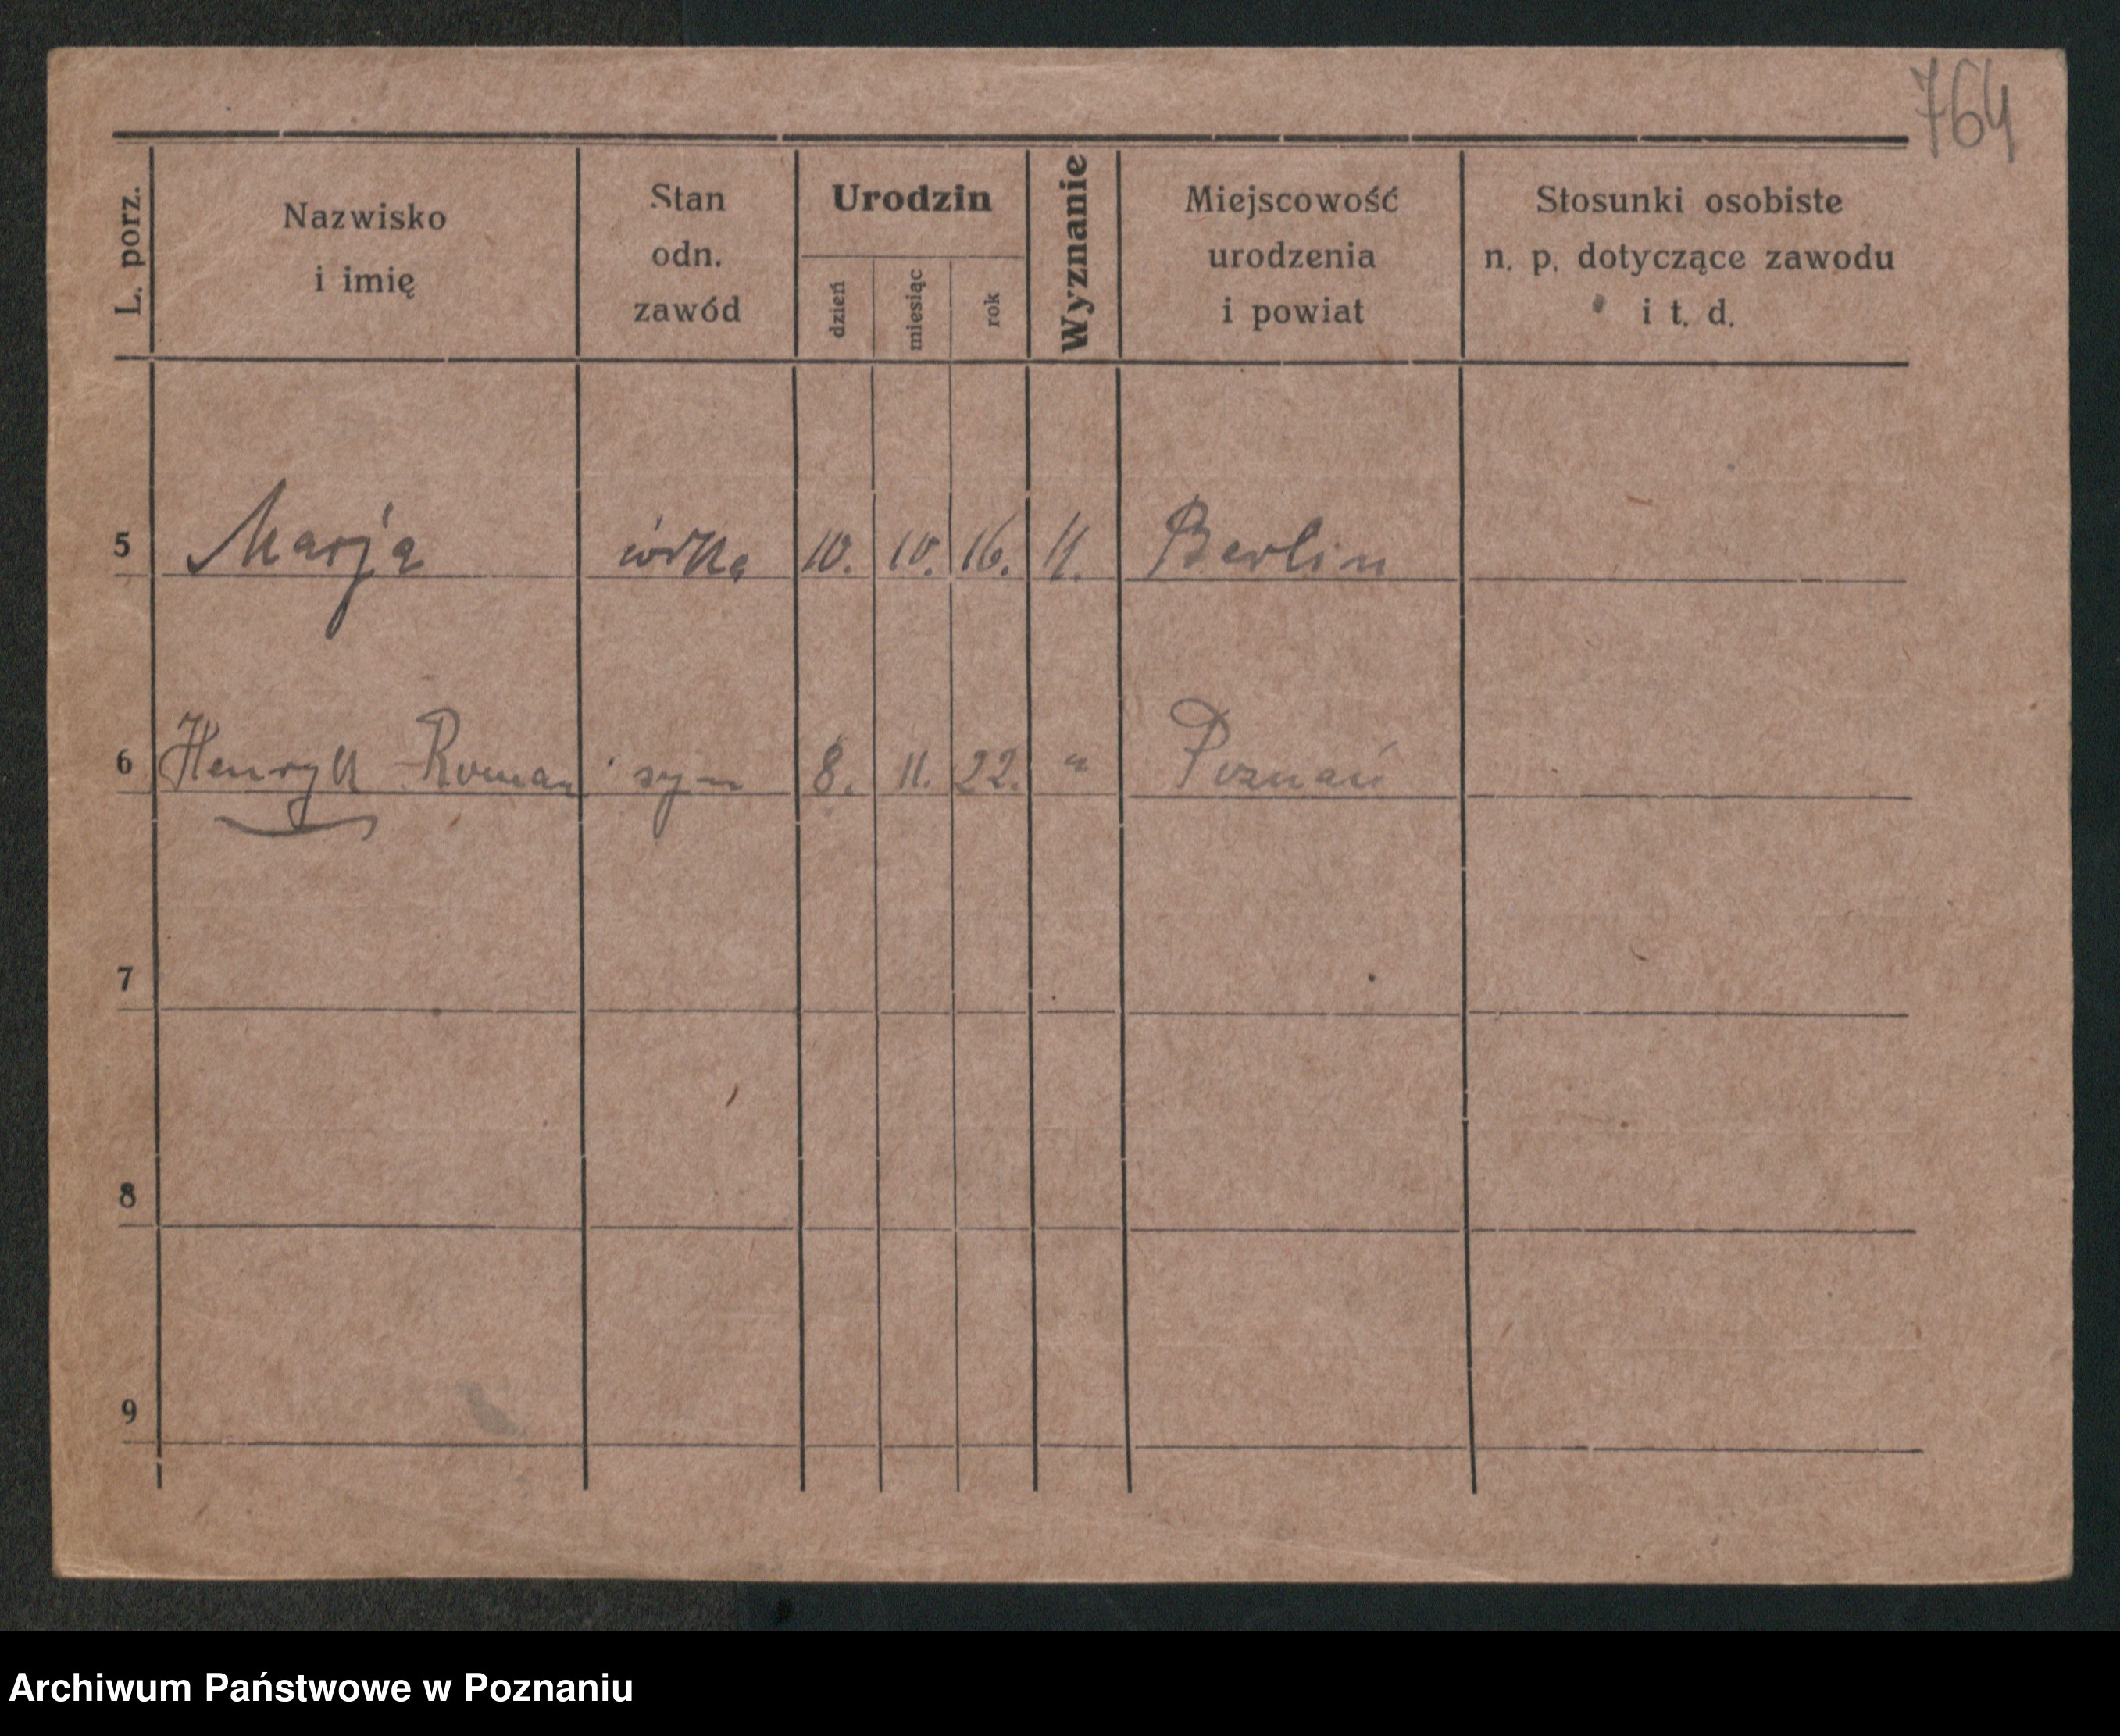 764
L. porz.
Nazwisko
i imię
Stan
odn.
zawód
Urodzin
dzień
miesiąc
rok
Wyznanie
Miejscowość
urodzenia
i powiat
Stosunki osobiste
n. p. dotyczące zawodu
i t. d.
5 Marja córka 10. 10. 16. Berlin
6 Henryk Roman syn 8. 11. 22. " Poznań
7
8
9
Archiwum Państwowe w Poznaniu